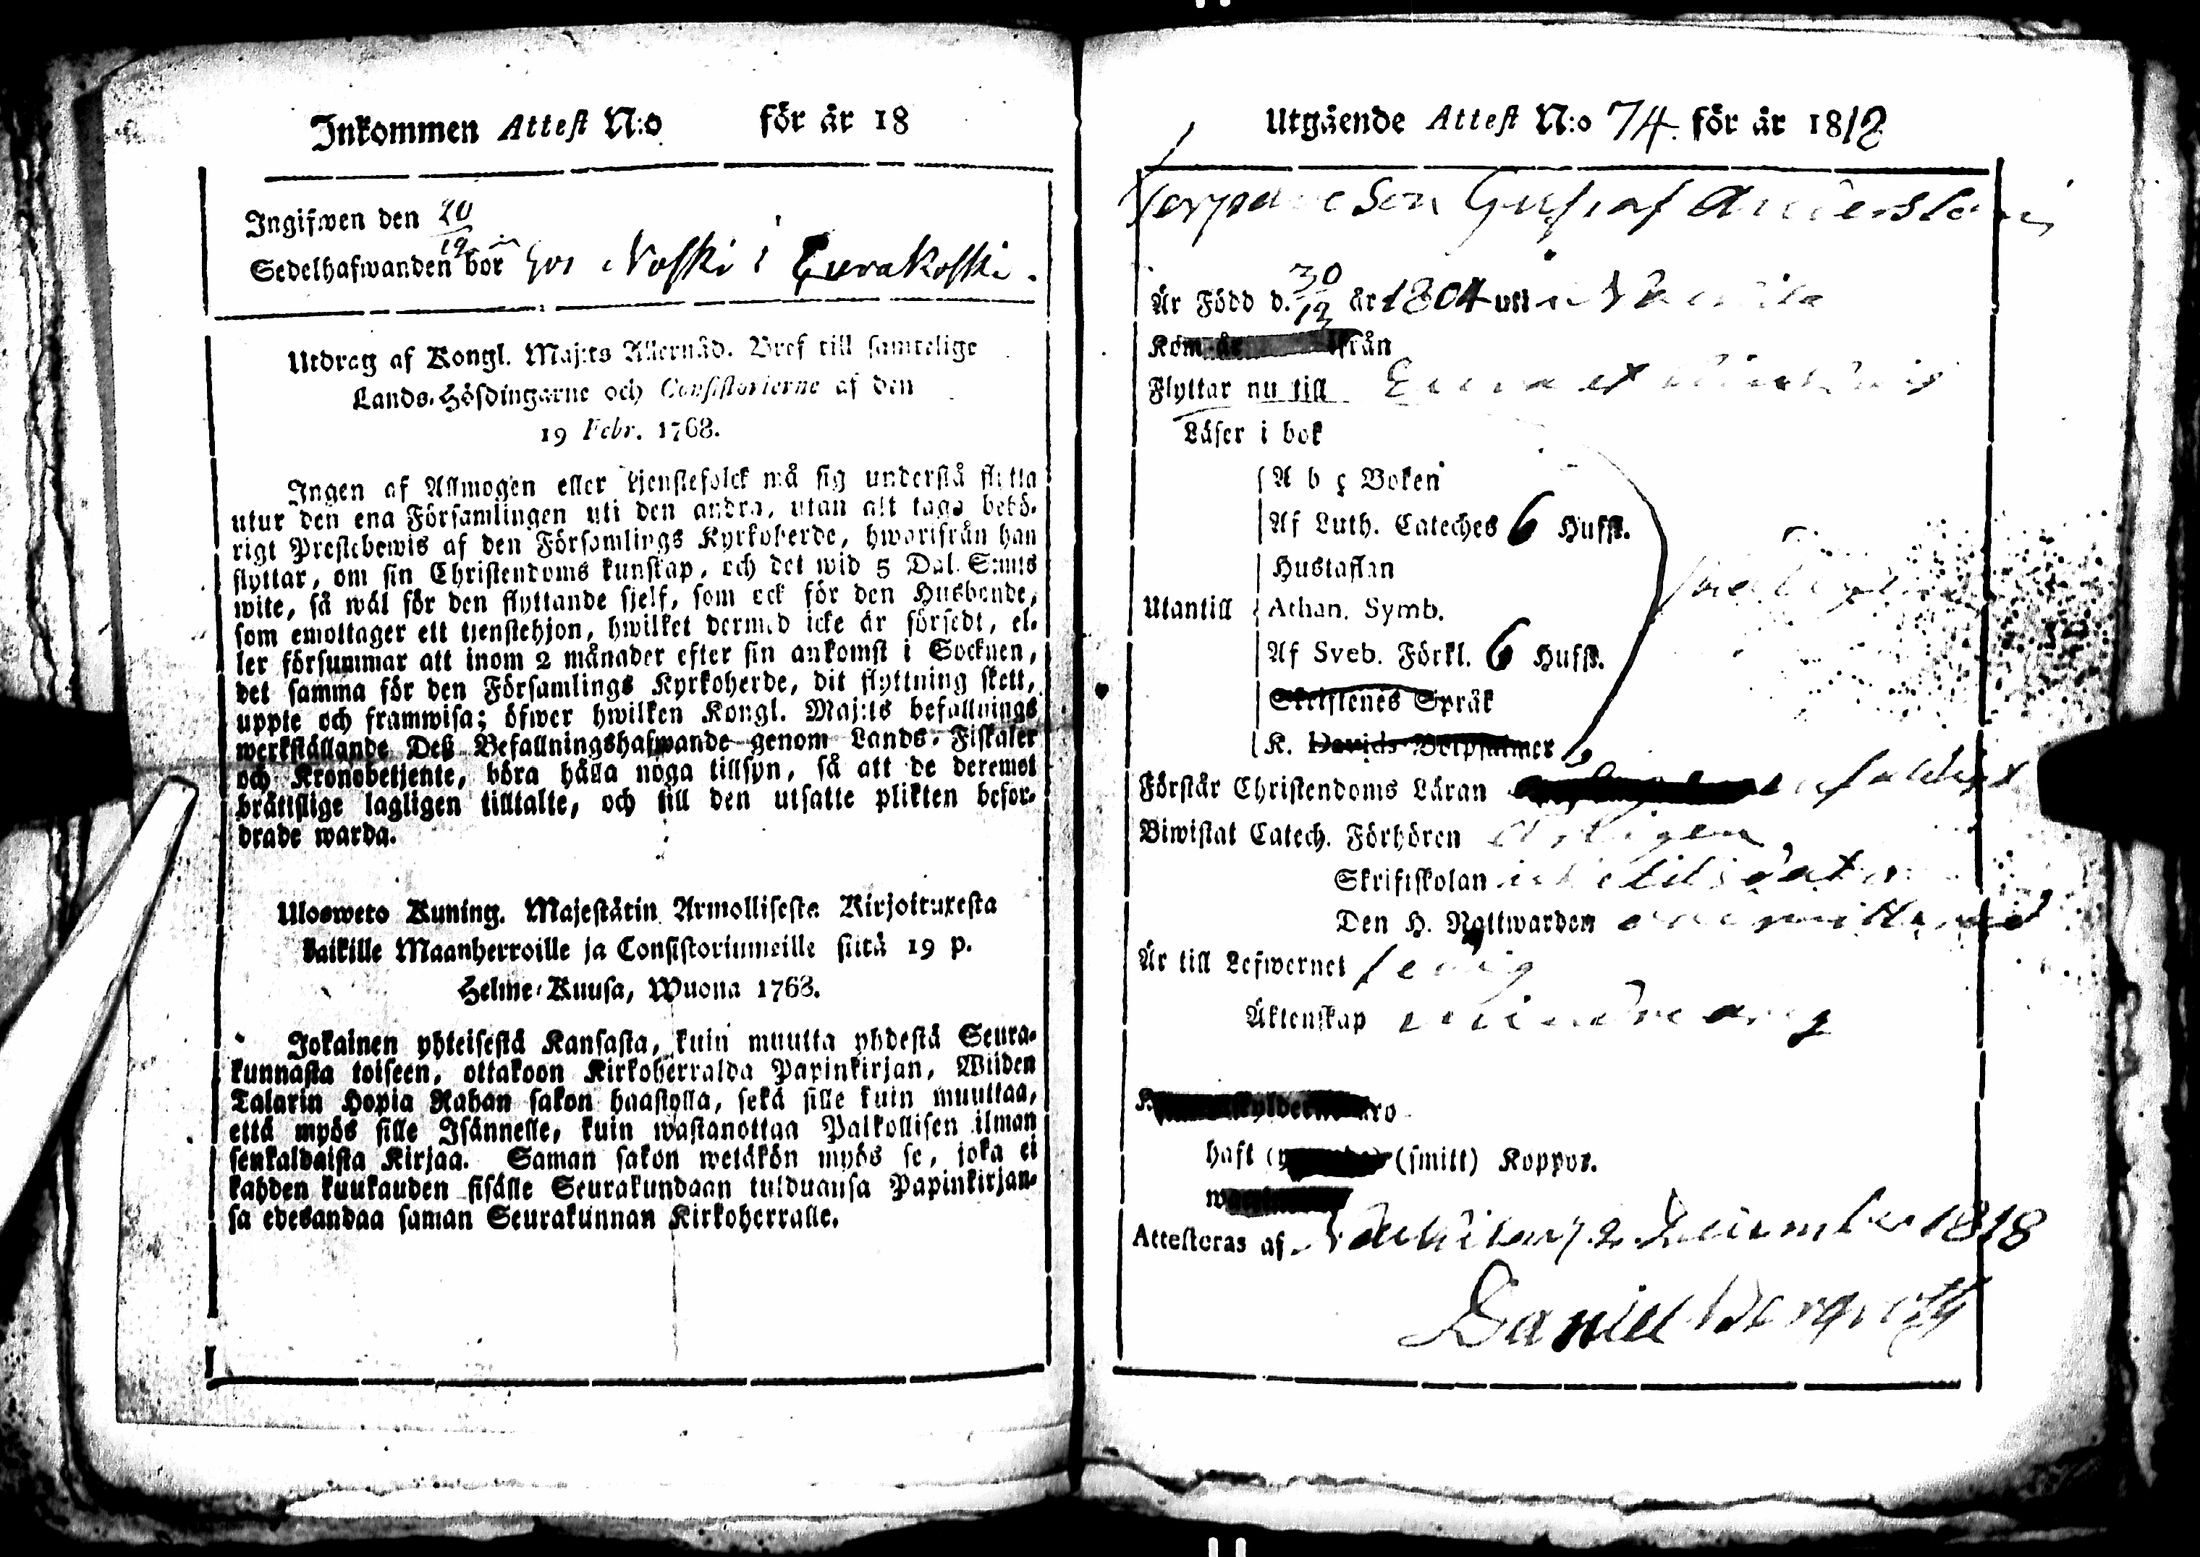 Inkommen Attest N:o för år 18
Ingifwen den 20/12
Sedelhafwanden bor hos Noski i Eurakoski.
Utdrag af Kongl. Maj:ts Allernåd. Bref till samtelige
Lands-Höfdingarne och Consistorierne af den
19 Febr. 1768.
Ingen af Allmogen eller tjenstefolck må sig understå flytta
utur den ena Församlingen uti den andra, utan att taga behö-
rigt Prestebewis af den Församlings Kyrkoherde, hworifrån han
flyttar, om sin Christendoms kunskap, och det wid 5 Dal. S:mts
wite, så wäl för den flyttande sjelf, som ock för den Husbonde,
som emottager ett tienstehjon, hwilket dermed icke är försedt, el-
ler försummar att inom 2 månader efter sin ankomst i Socknen,
det samma för den Församlings Kyrkoherde, dit flyttning skett,
uppte och framwisa; öfwer hwilken Kongl. Maj:ts befallnings
werkställande Deß Befallningshafwande genom Lands-Fiskaler
och Kronobetjente, böra hålla noga tillsyn, så att de deremot
bråttslige lagligen tilltalte, och till den utsatte plikten befor-
drade warda.
Ulosweto Kuning. Majestätin Armollisesta Kirjoituxesta
kaikille Maanherroille ja Consistoriumeille siitä 19 p.
Helme-Kuusa, Wuona 1768.
Jokainen yhteisestä Kansasta, kuin muutta yhdestä Seura-
kunnasta toiseen, ottakoon Kirkoherralda Papinkirjan, Wiiden
Talarin Hopia Rahan sakon haastolla, sekä sille kuin muuttaa,
että myös sille Isännelle, kuin wastanottaa Palkollisen ilman
senkaldaista Kirjaa. Saman sakon wetäkön myös se, joka ei
kahden kuukauden sisälle Seurakundaan tulduansa Papinkirjan-
sa edesandaa saman Seurakunnan Kirkoherralle.
Utgående Attest N:o 74 för år 1818
Son Gustaf Andersson
Är Född d. 30/12 år 1804 uti
Kom år ifrån
Flyttar nu till Eura
Läser i bok
A b c Boken
Af Luth. Cateches 6 Hufst.
Hustaflan
Utantill Athan. Symb.
Af Sveb. Förkl. 6 Hufst.
Skriftenes Språk
K. Davids Botpsalmer
Förstår Christendoms Läran enfaldigt
Biwistat Catech. Förhören årligen
Skriftskolan
Den H. Nattwarden
Är till Lefwernet fredlig
Äktenskap minderårig
haft (smitt) Koppor.
Attesteras af Nakkila 12 December 1818
Daniel Bergroth